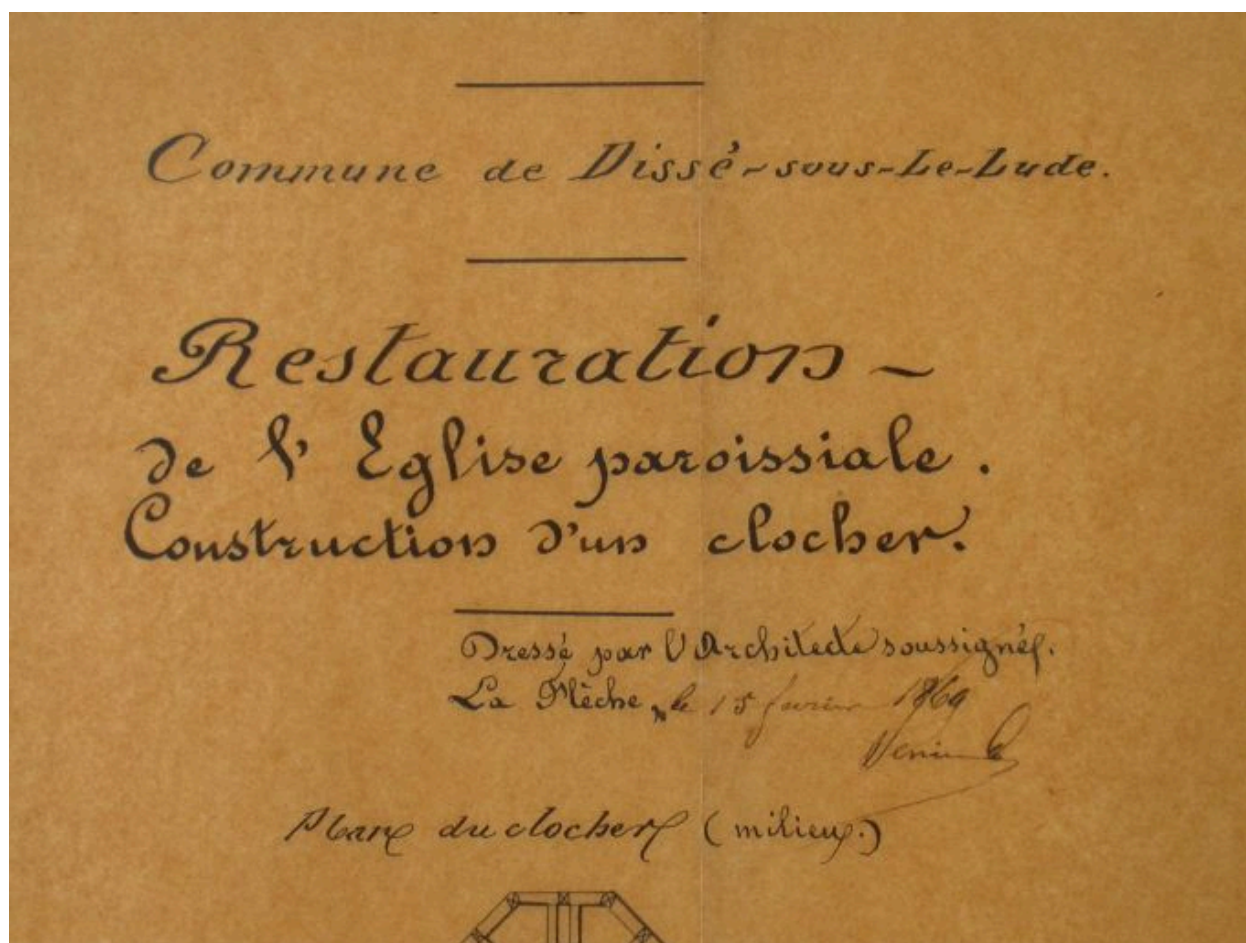 Commune de Dissé-sous-Le-Lude.
Restauration -
de l'Eglise paroissiale.
Construction d'un clocher.
Dressé par l'Architecte soussigné.
La Flèche, le 15 février 1869
Plan du clocher (milieu.)